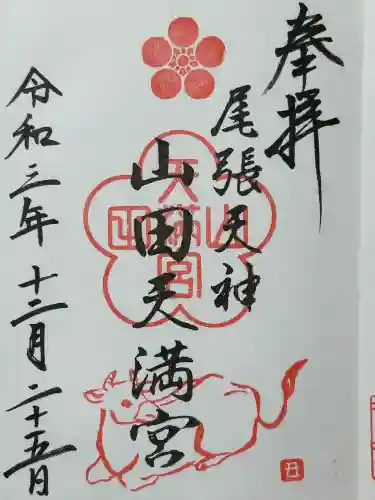 奉拝
尾張天神
山田天満宮
令和三年 十二月 二十五日
山田天満宮
丑